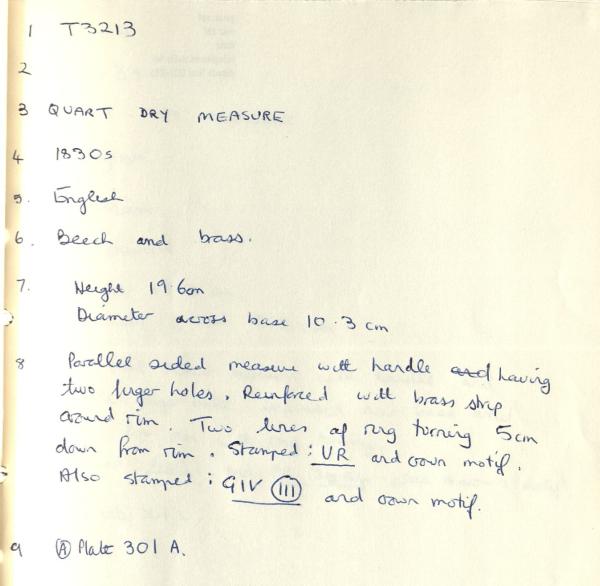 1 T3213
2
3 QUART DRY MEASURE
4 1830s
5. English
6. Beech and brass.
7. Height 19.6cm
Diameter across base 10.3 cm
8 Parallel sided measure with handle and having
two finger holes. Reinforced with brass strip
around rim. Two lines of ring turning 5cm
down from rim. Stamped: VR and crown motif.
Also stamped: GIV III and crown motif.
9 A Plate 301 A.